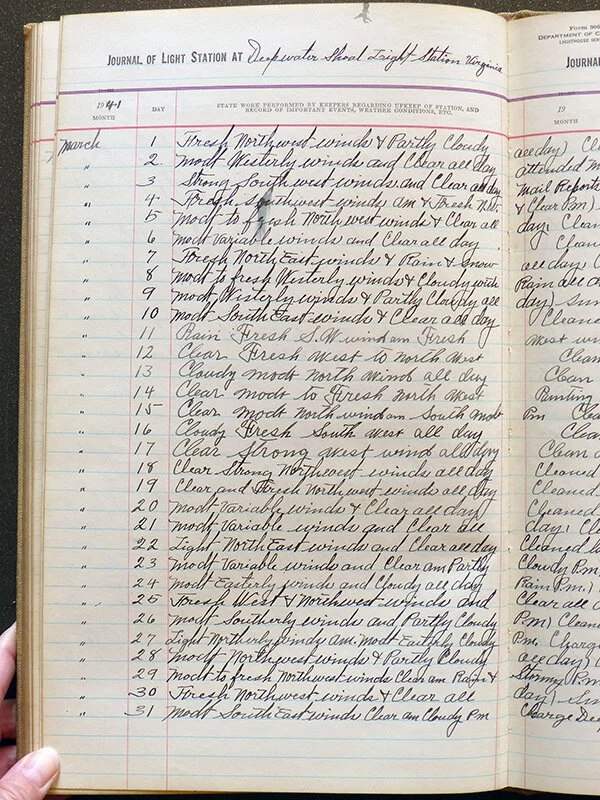 JOURNAL OF LIGHT STATION AT Deepwater Shoal Light Station Virginia
1941
MONTH
DAY
STATE WORK PERFORMED BY KEEPERS REGARDING UPKEEP OF STATION, AND
RECORD OF IMPORTANT EVENTS, WEATHER CONDITIONS, ETC.
March 1 Fresh Northwest winds & Partly Cloudy
" 2 modt Westerly winds and Clear all day
" 3 Strong Southwest winds and Clear all day
" 4 Fresh Southwest winds am & Fresh
" 5 Modt to fresh Northwest winds & Clear all
" 6 modt Variable winds and Clear all day
" 7 Fresh North East winds & Rain & snow
" 8 modt to fresh Westerly winds & Cloudy
" 9 modt Westerly winds & Partly Cloudy all
" 10 Modt South East winds & Clear all day
" 11 Rain Fresh S.W wind am Fresh
" 12 Clear Fresh West to north West
" 13 Cloudy modt north Wind all day
" 14 Clear modt to Fresh north West
" 15 Clear modt north wind am South modt
" 16 Cloudy Fresh South West all day
" 17 Clear Strong West wind all day
" 18 Clear Strong Northwest winds all day
" 19 Clear and Fresh Northwest winds all day
" 20 modt Variable winds & Clear all day
" 21 modt Variable winds and Clear all
" 22 Light North East winds and Clear all day
" 23 modt Variable winds and Clear am Partly
" 24 Modt Easterly winds and Cloudy all day
" 25 Fresh West & Northwest winds and
" 26 modt Southerly winds and Partly Cloudy
" 27 Light Northerly winds am Modt Easterly Cloudy
" 28 modt Northwest winds & Partly Cloudy
" 29 Modt to fresh Northwest winds Clear am Rain &
" 30 Fresh Northwest winds & Clear all
" 31 Modt South East winds Clear am Cloudy Pm
Form 306
DEPARTMENT OF C
LIGHTHOUSE SER
JOURNA
19
MONTH
all day) C
attended
Mail Report
& Clear Pm)
day; Clean
Cleane
all day; C
Rain all d
day) Sun
Cleaned
West win
Clean
Clean
Pm Clea
Clea
Clean
Cleaned
Cleaned
Cleaned
day; Cl
Cleaned
Cloudy Pm;
Rain Pm;
Clear all
Pm) Clean
Pm; Charge
all day)
Stormy Pm
day)
Charge Dee